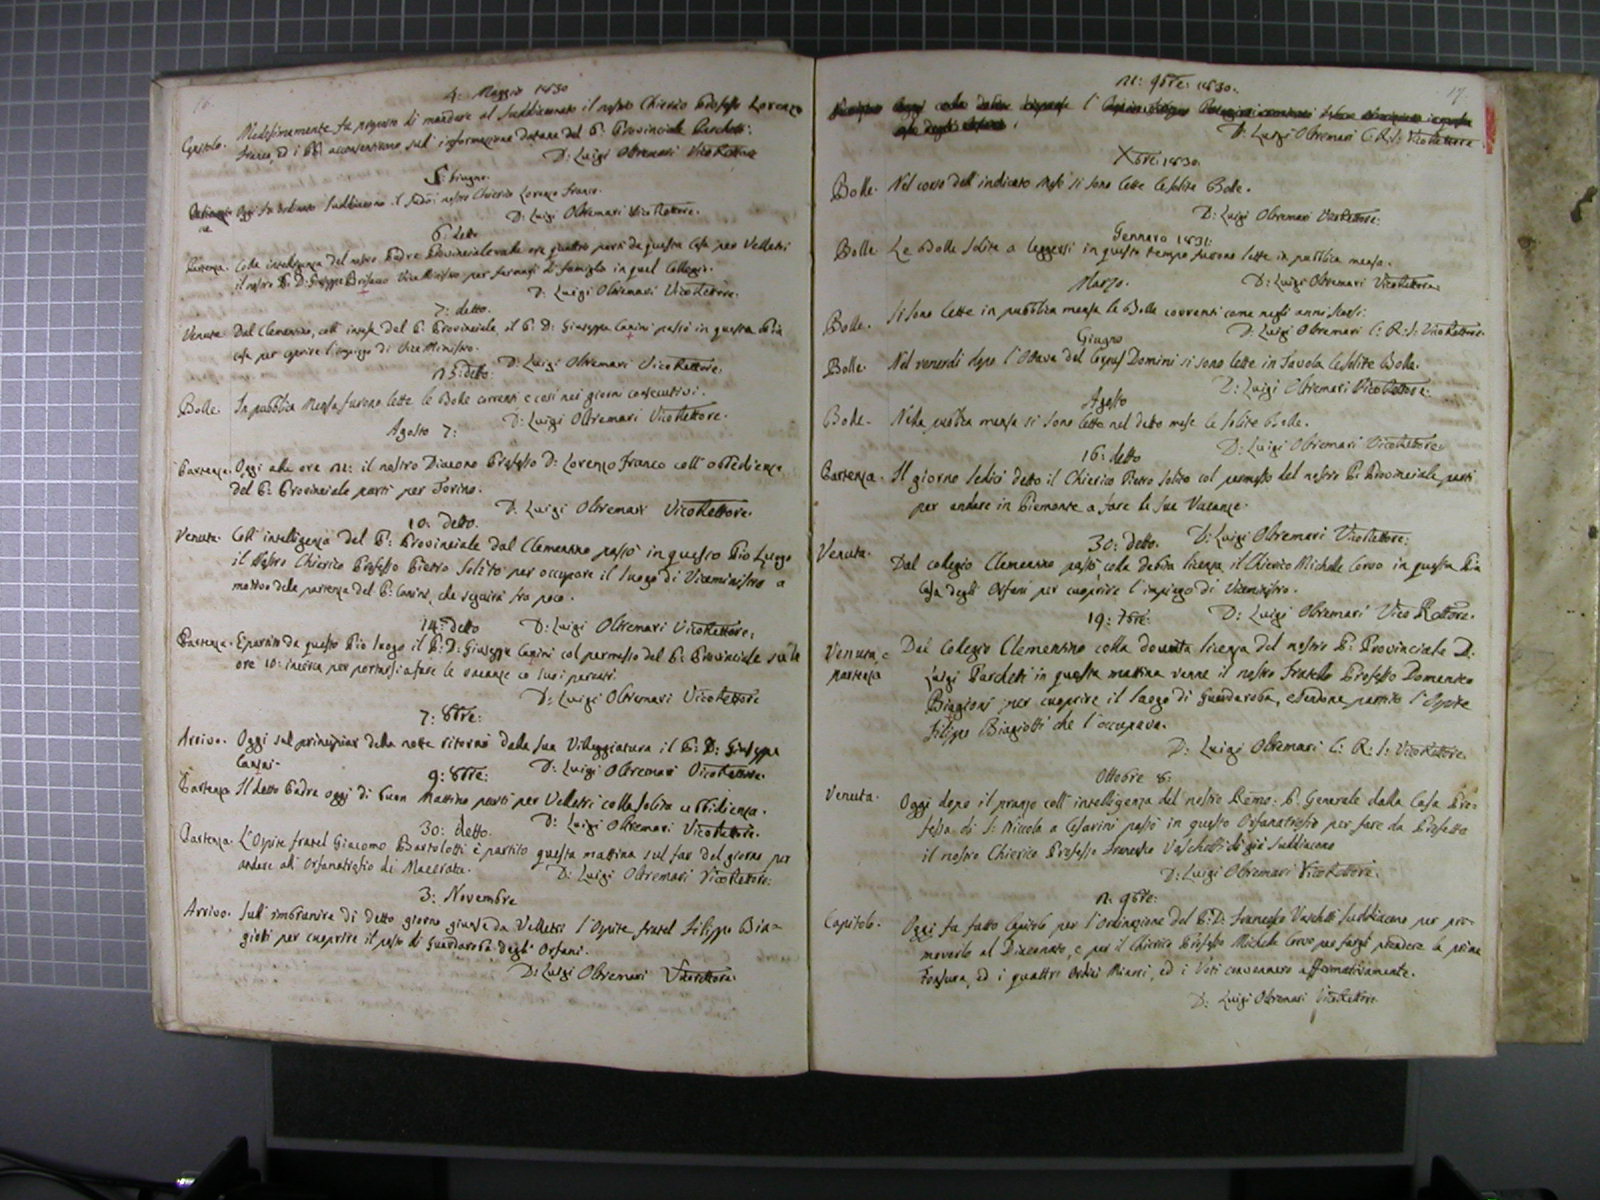 16.
4: Maggio 1830
Capitolo. Medesimamente fu proposto di mandare al Suddiaconato il nostro Chierico Professo Lorenzo
Franco, ed i PP. acconsentirono sull'informazione datane dal P. Provinciale Parchetti.
D. Luigi Oltremari ViceRettore
5: Giugno.
Oggi fu ordinato Suddiacono il nostro Chierico Lorenzo Franco.
D: Luigi Oltremari ViceRettore.
6. detto
Partenza. Colla intelligenza del nostro Padre Provinciale alle ore quattro partì da questa Casa per Velletri
il nostro P. D. Giuseppe Viceministro per portarsi di famiglia in quel Collegio.
D: Luigi Oltremari ViceRettore.
7: detto.
Venuta. Dal Clementino, coll' intesa del P. Provinciale, il P. D: Giuseppe Canini passò in questa Pia
Casa per coprire l'impiego di Vice Ministro.
D: Luigi Oltremari ViceRettore.
15: detto.
Bolle. In pubblica Mensa furono lette le Bolle correnti e così nei giorni consecutivi.
D: Luigi Oltremari ViceRettore.
Agosto 7:
Partenza. Oggi alle ore il nostro Diacono Professo D: Lorenzo Franco coll' obbedienza
del P. Provinciale partì per Torino.
D: Luigi Oltremari ViceRettore.
10. detto.
Venuta. Coll' intelligenza del P. Provinciale dal Clementino passò in questo Pio Luogo
il Nostro Chierico Professo Pietro Solito per occupare il luogo di Viceministro a
motivo della partenza del P. Canini, che seguirà fra poco.
14: detto D: Luigi Oltremari ViceRettore.
Partenza. È partito da questo Pio luogo il P. D. Giuseppe Canini col permesso del P. Provinciale sulle
ore 10: incirca per portarsi a fare le vacanze co' suoi parenti.
D: Luigi Oltremari ViceRettore
7: 8bre:
Arrivo. Oggi sul principiar della notte ritornò dalla sua Villeggiatura il P. D: Giuseppe
Canini.
D: Luigi Oltremari ViceRettore.
9: 8bre:
Partenza. Il detto Padre oggi di buon Mattino partì per Velletri colla solita ubbidienza.
D: Luigi Oltremari ViceRettore.
30: detto.
Partenza. L'Ospite fratel Giacomo Bartolotti è partito questa mattina sul far del giorno per
andare all' Orfanatrofio di Macerata.
D: Luigi Oltremari ViceRettore.
3: Novembre
Arrivo. Sull' imbrunire di detto giorno giunse da Velletri l'Ospite fratel Filippo Bia=
giotti per cuoprire il posto di Guardaroba degli Orfani.
D: Luigi Oltremari ViceRettore.
17.
9bre: 1830.
D: Luigi Oltremari C. R. S: ViceRettore
Xbre: 1830.
Bolle. Nel corso dell' indicato Mese si sono lette le solite Bolle.
D: Luigi Oltremari ViceRettore.
Gennaro 1831:
Bolle. Le Bolle solite a leggersi in questo tempo furono lette in pubblica mensa.
D: Luigi Oltremari ViceRettore.
Marzo.
Bolle. Si sono lette in pubblica mensa le Bolle correnti come negli anni scorsi.
D: Luigi Oltremari C: R: S: ViceRettore.
Giugno
Bolle. Nel venerdì dopo l'Ottava del Corpus Domini si sono lette in Tavola le solite Bolle.
D: Luigi Oltremari ViceRettore.
Agosto
Bolle. Nella pubblica mensa si sono lette nel detto mese le solite Bolle.
D: Luigi Oltremari ViceRettore.
16: detto
Partenza. Il giorno sedici detto il Chierico Pietro Solito col permesso del nostro P. Provinciale partì
per andare in Piemonte a fare le sue Vacanze.
D: Luigi Oltremari ViceRettore.
30: detto.
Venuta. Dal collegio Clementino passò colla debita licenza il Chierico Michele Corvo in questa Pia
Casa degli Orfani per cuoprire l'impiego di Viceministro.
D: Luigi Oltremari Vice Rettore.
19: 7bre:
Venuta, e Dal Collegio Clementino colla dovuta licenza del nostro P. Provinciale D.
partenza Luigi Parchetti in questa mattina venne il nostro Fratello Professo Domenico
Biaggioni per cuoprire il luogo di Guardaroba, essendone partito l'Ospite
Filippo Biagiotti che l'occupava.
D: Luigi Oltremari C: R: S: ViceRettore.
Ottobre 8:
Venuta. Oggi dopo il pranzo coll' intelligenza del nostro Rmo: P. Generale dalla Casa Pro-
fessa di S: Niccola a Cesarini passò in questo Orfanatrofio per fare da Prefetto
il nostro Chierico Professo Francesco Vaschetti di già Suddiacono
D: Luigi Oltremari ViceRettore.
9bre:
Capitolo. Oggi fu fatto Capitolo per l'Ordinazione del P. D. Francesco Vaschetti Suddiacono per pro-
moverlo al Diaconato, e per il Chierico Professo Michele Corvo per fargli prendere la prima
Tonsura, ed i quattro Ordini Minori, ed i Voti convennero affermativamente.
D: Luigi Oltremari ViceRettore